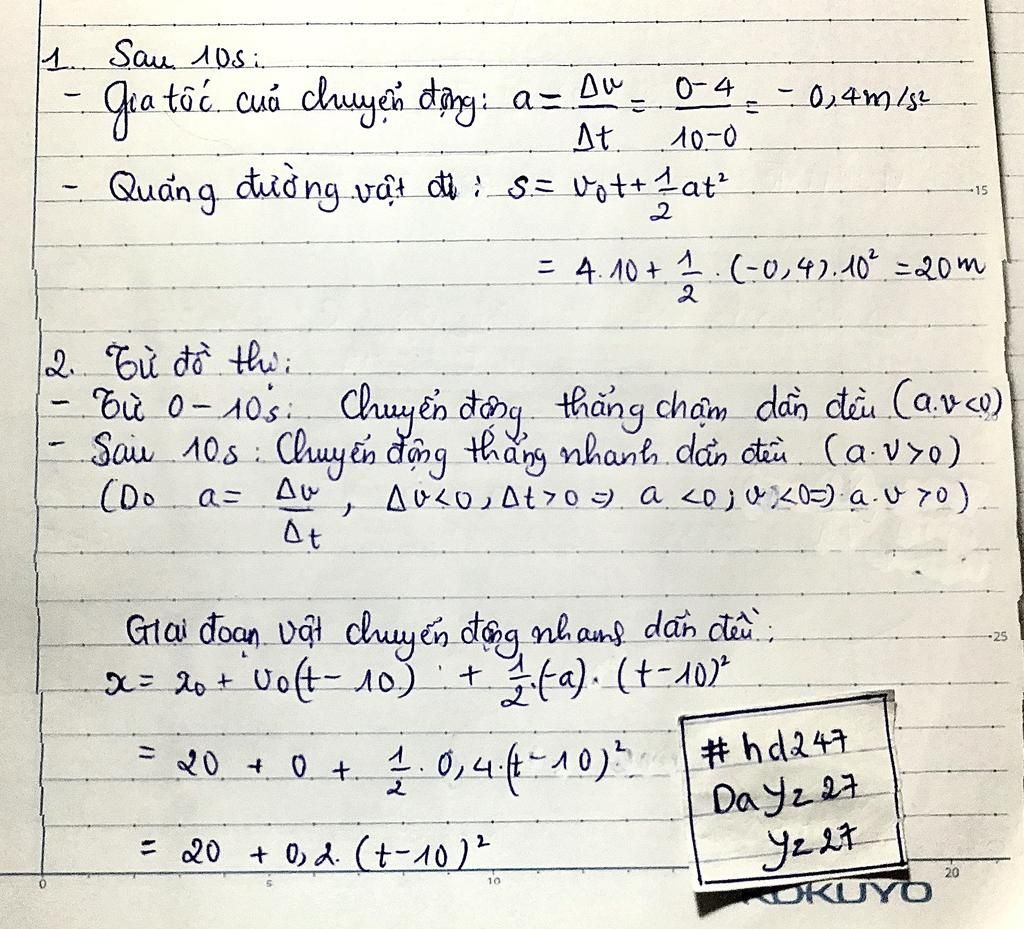 1. Sau 10s:
- Gia tốc của chuyển động: a = Δv/Δt = 0-4/10-0 = - 0,4m/s²
- Quãng đường vật đi: s = v₀t + 1/2 at²
15
= 4.10 + 1/2 . (-0,4).10² = 20m
2. Từ đồ thị:
- Từ 0-10s: Chuyển động thẳng chậm dần đều (a.v<0)
- Sau 10s: Chuyển động thẳng nhanh dần đều (a.v>0)
(Do a = Δv/Δt, Δv<0, Δt>0 => a <0; v<0=> a.v >0)
Giai đoạn vật chuyển động nhanh dần đều:
25
x = x₀ + v₀(t-10) + 1/2.(-a).(t-10)²
= 20 + 0 + 1/2 . 0,4.(t-10)²
= 20 + 0,2.(t-10)²
#hd247
Dayz27
yz27
0 5 10 20
KOKUYO